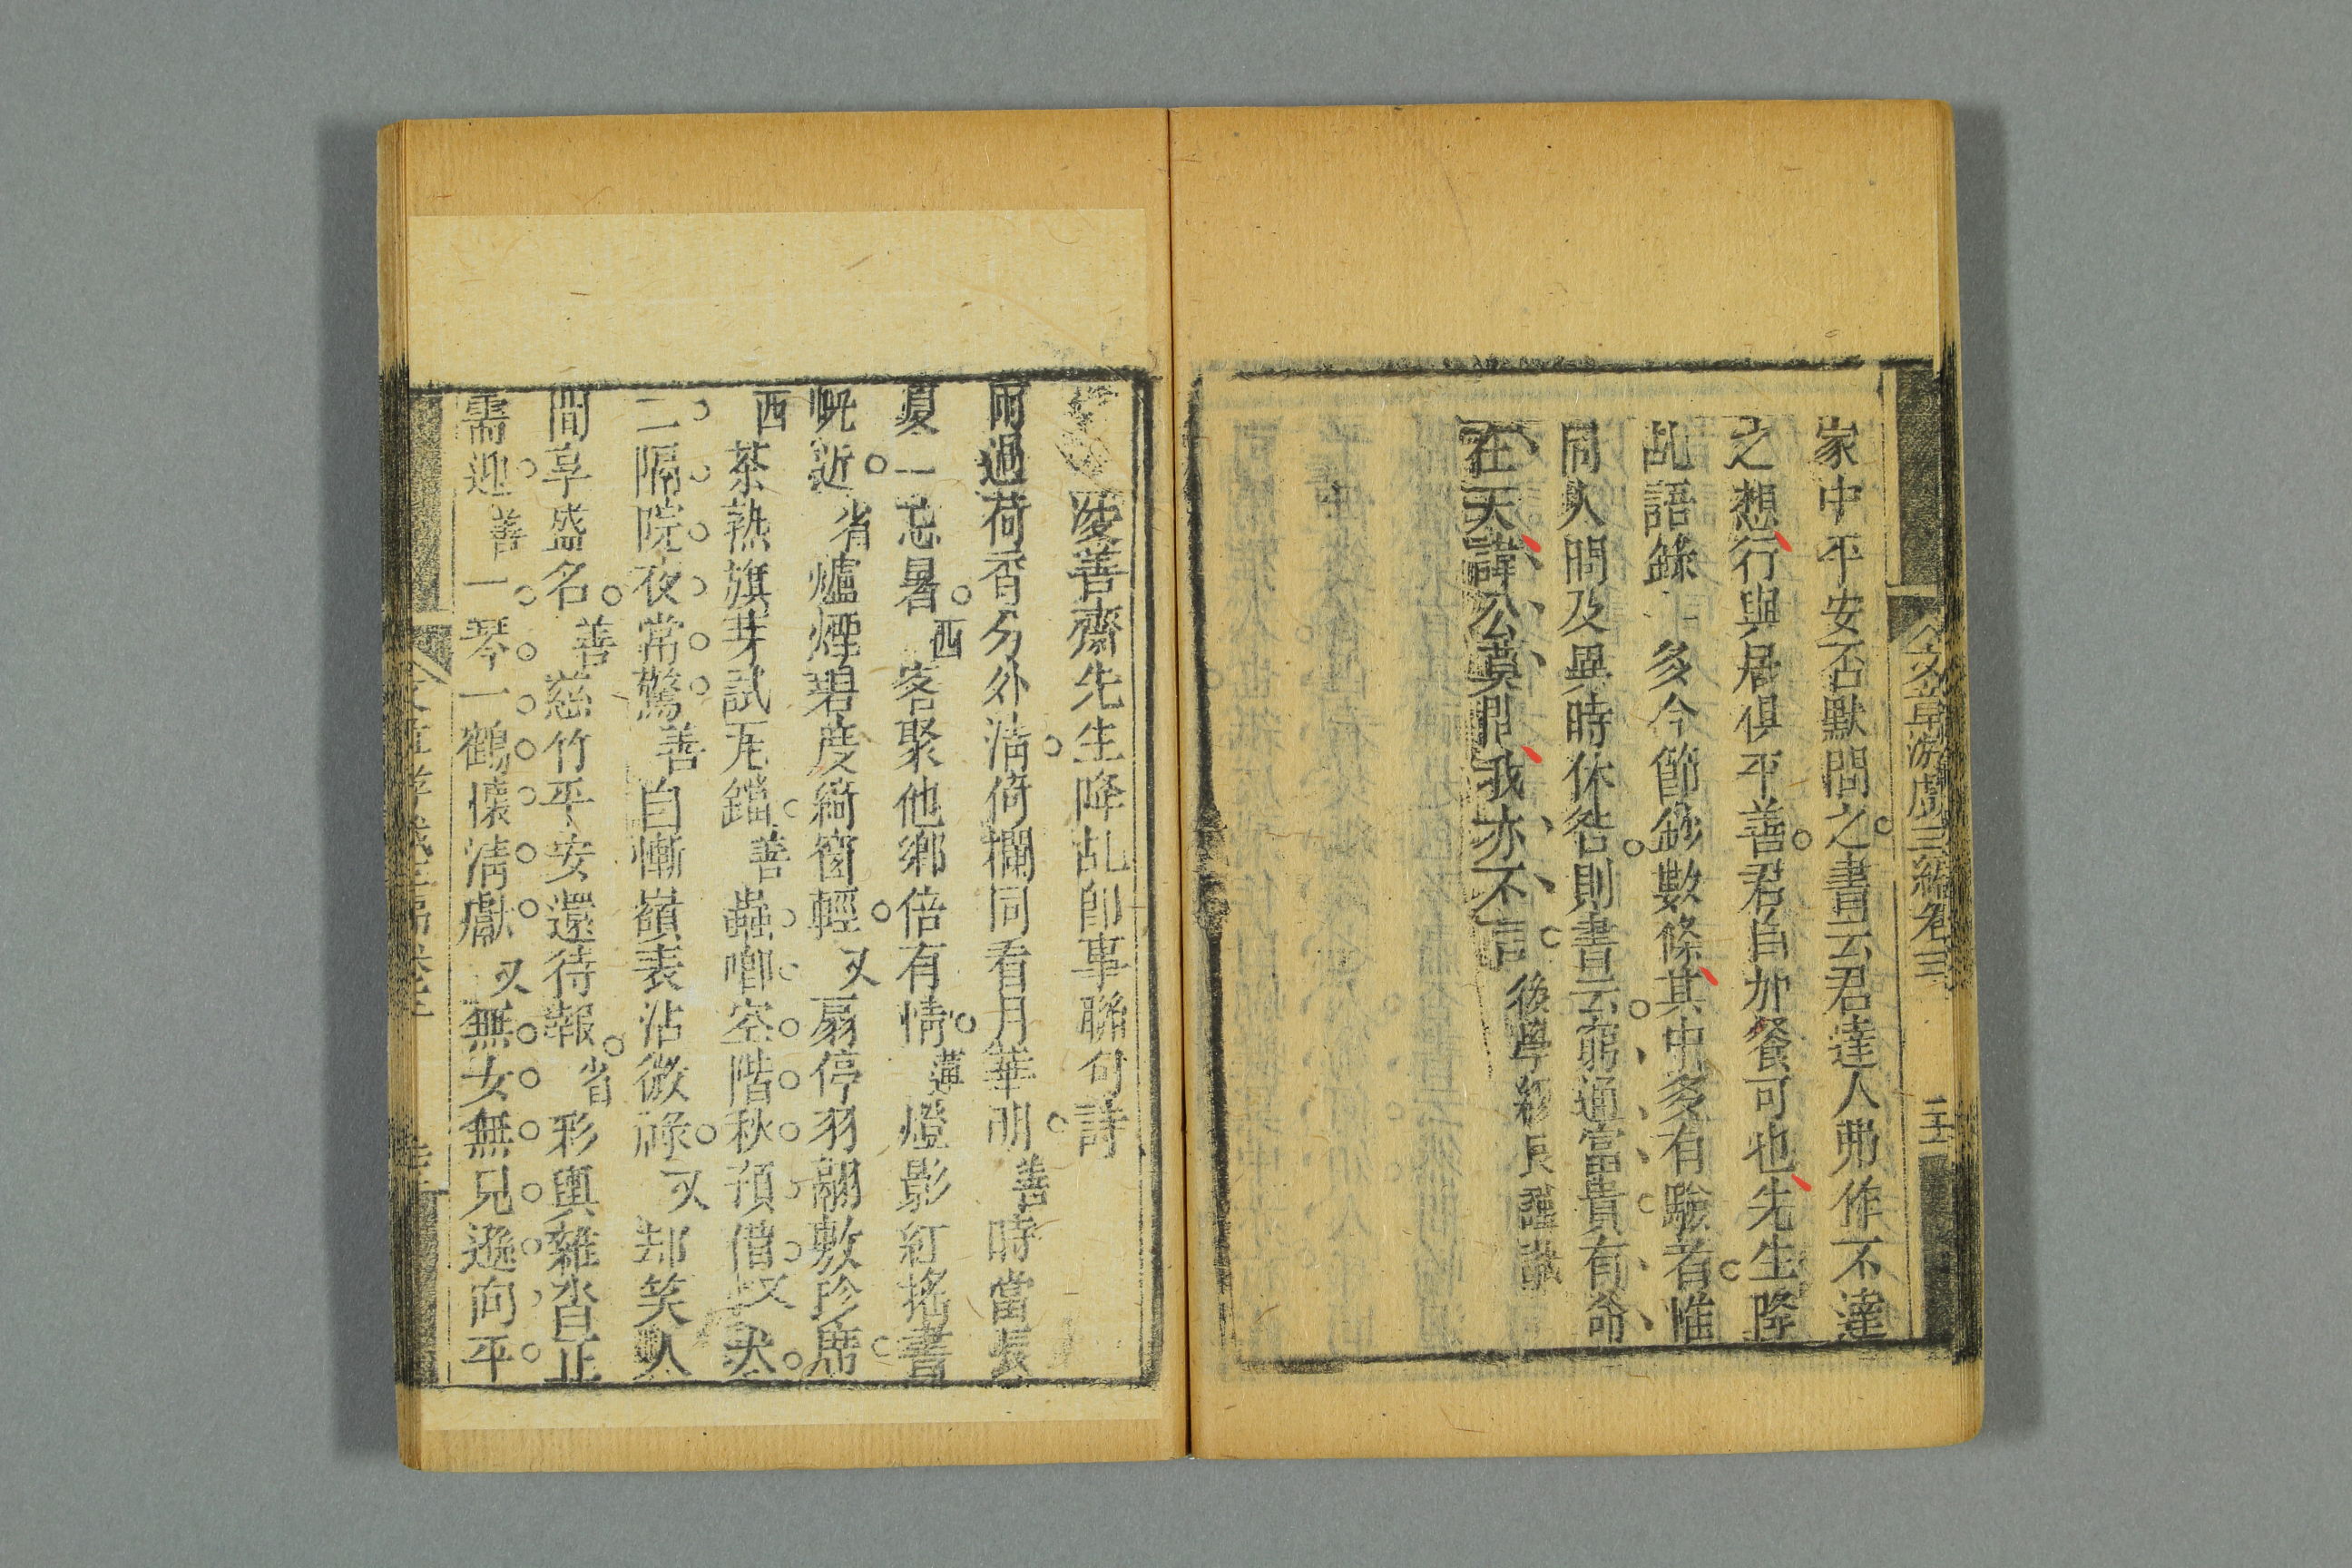 文章游戲三編卷三
家中平安否默問之書云君達人弗作不達
之想行與居俱平善君自加餐可也先生降
乩語錄 多今節鈔數條其中多有驗者惟
同人問及異時休咎則書云窮通富貴有命
在天諱公莫問我亦不言後學 謹識
陵善齋先生降乩卽事聯句詩
雨過荷香分外清倚欄同看月華明善時當長
夏一忘暑西客聚他鄉倍有情蓮燈影紅搖書
幌近省爐煙碧度綺窗輕又扇停羽翮敷珍席
西茶熟旗芽試瓦鐺善蟲唧空階秋預借又犬
二隔院夜常驚善自慚嶺表沾微祿又却笑人
間享盛名善慈竹平安還待報省彩輿雜沓正
需迎善一琴一鶴懷清獻又無女無兒遜向平